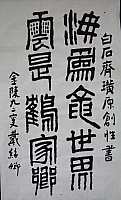 白石齊璜原創性書
海為龍世界
雲是鶴家鄉
金陵九二叟戴紹卿